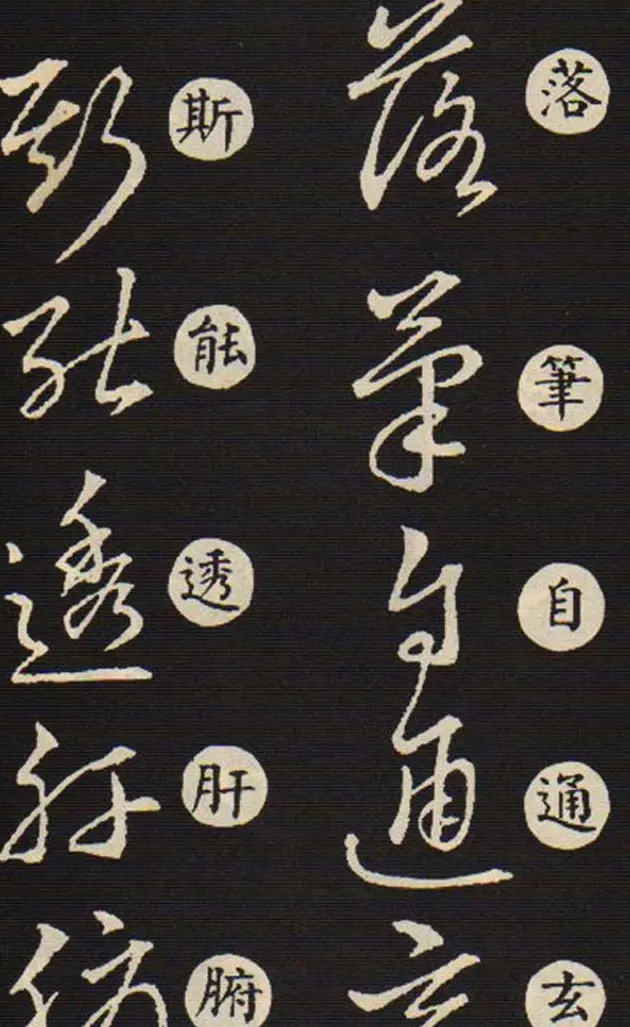 落筆自通玄
斯能透肝腑